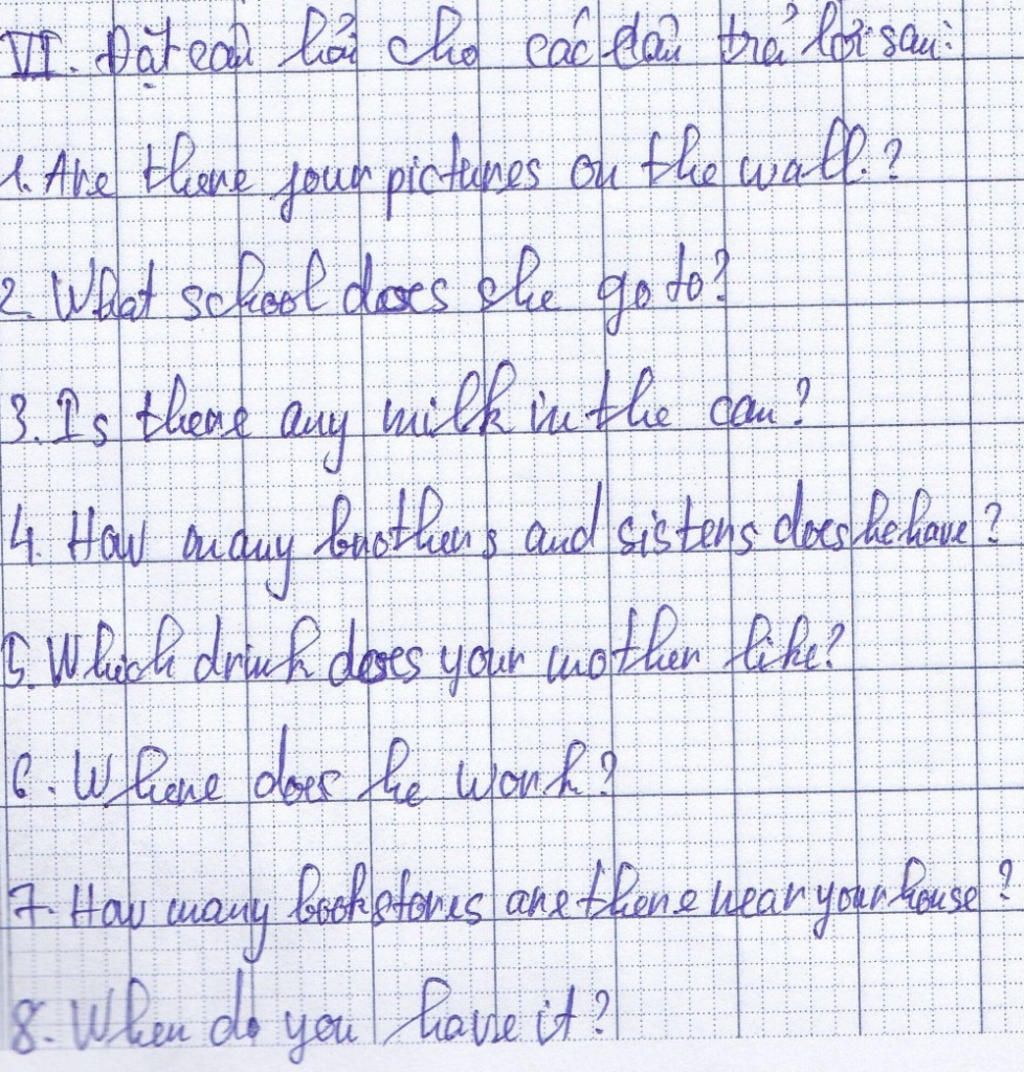 VI. Đặt câu hỏi cho các câu trả lời sau:
1. Are there four pictures on the wall.?
2. What school does she go to?
3. Is there any milk in the can?
4. How many brothers and sisters does he have?
5. Which drink does your mother like?
6. Where does he work?
7. How many bookstores are there near your house?
8. When do you have it?